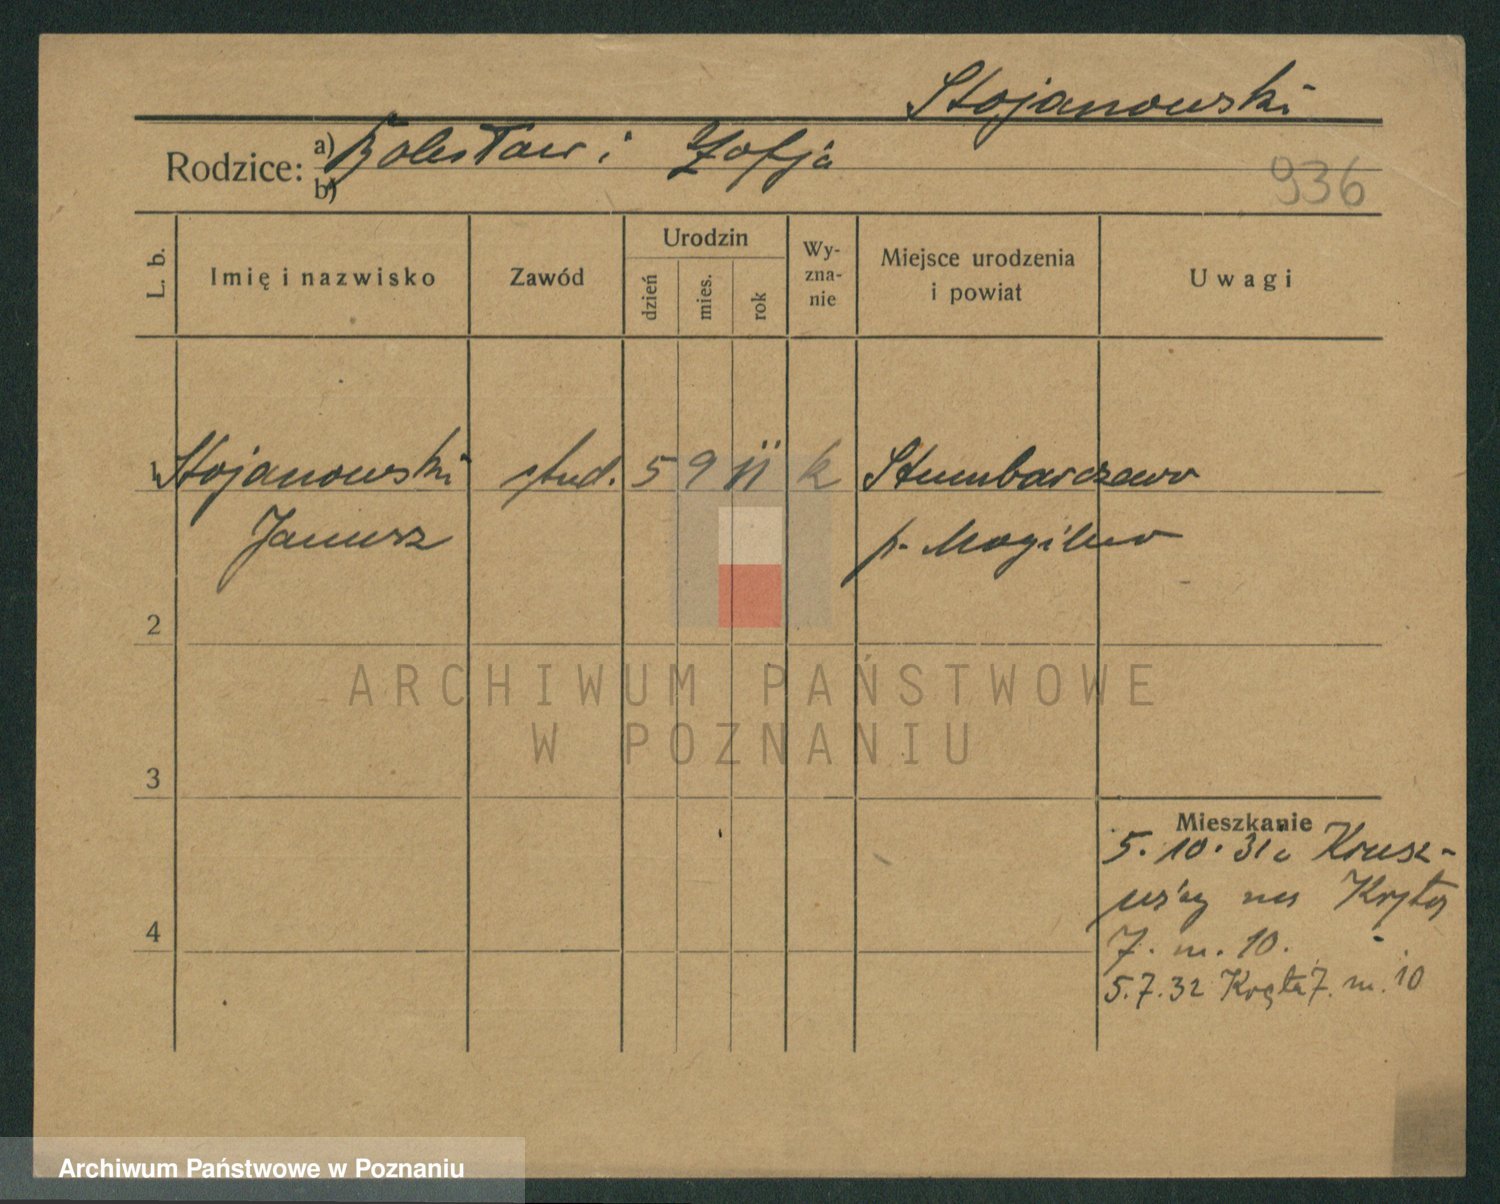 Stojanowski
Rodzice: a) Bolesław i Zofja
b)
936
L. b.
Imię i nazwisko
Zawód
Urodzin
dzień
mies.
rok
Wy-
zna-
nie
Miejsce urodzenia
i powiat
Uwagi
1 Stojanowski stud. 5 9 11 k Stumbarczewo
Janusz p. Mogilno
2
3
4
Mieszkanie
5. 10. 31 z Krusz-
wicy na Krętą
7. m. 10.
5.7.32 Kręta 7. m. 10
ARCHIWUM PAŃSTWOWE
W POZNANIU
Archiwum Państwowe w Poznaniu